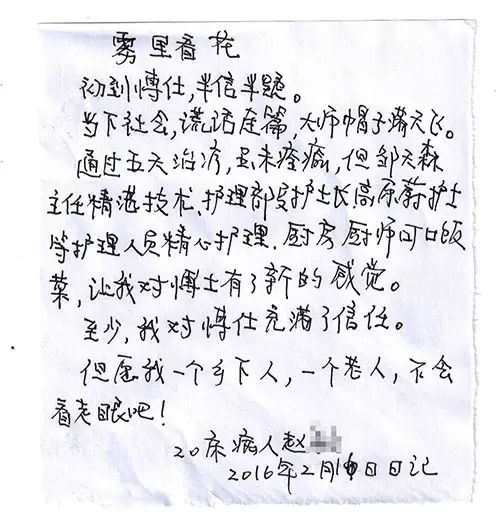 雾里看花
初到博仕,半信半疑。
当下社会,谎话连篇,大师帽子满天飞。
通过五天治疗,虽未痊瘉,但邹天森
主任精湛技术、护理部护士长高原蔚护士
等护理人员精心护理、厨房厨师可口饭
菜,让我对博士有了新的感觉。
至少,我对博仕充满了信任。
但愿我一个乡下人,一个老人,不会
看走眼吧!
20床病人赵
2016年2月日日记